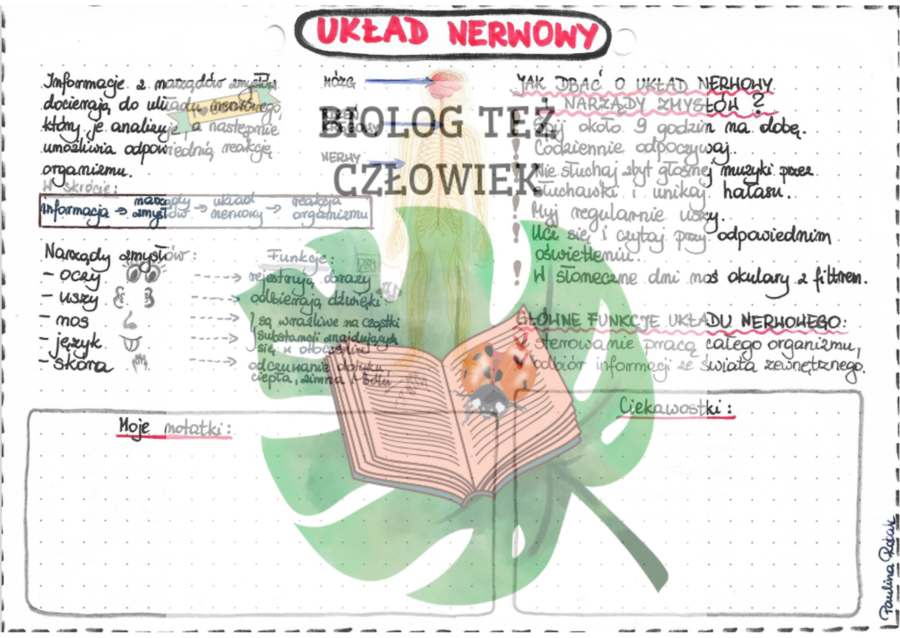 UKŁAD NERWOWY
Informacje z narządów zmysłów
docierają do układu nerwowego,
który je analizuje a następnie
umożliwia odpowiednią reakcję
organizmu.
W skrócie:
informacja → narządy zmysłów → układ nerwowy → reakcja organizmu
Narządy zmysłów:
Funkcje:
- oczy → rejestrują obrazy
- uszy → odbierają dźwięki
- nos
- język
} są wrażliwe na cząstki
substancji znajdujących
się w otoczeniu
- skóra → odczuwanie dotyku,
ciepła, zimna i bólu
MÓZG
NERWY
BIOLOG TEŻ
CZŁOWIEK
JAK DBAĆ O UKŁAD NERWOWY
I NARZĄDY ZMYSŁÓW?
Śpij około 9 godzin na dobę.
Codziennie odpoczywaj.
Nie słuchaj zbyt głośnej muzyki przez
słuchawki i unikaj hałasu.
Myj regularnie uszy.
Ucz się i czytaj przy odpowiednim
oświetleniu.
W słoneczne dni noś okulary z filtrem.
GŁÓWNE FUNKCJE UKŁADU NERWOWEGO:
sterowanie pracą całego organizmu,
odbiór informacji ze świata zewnętrznego.
Moje notatki:
Ciekawostki:
Paulina